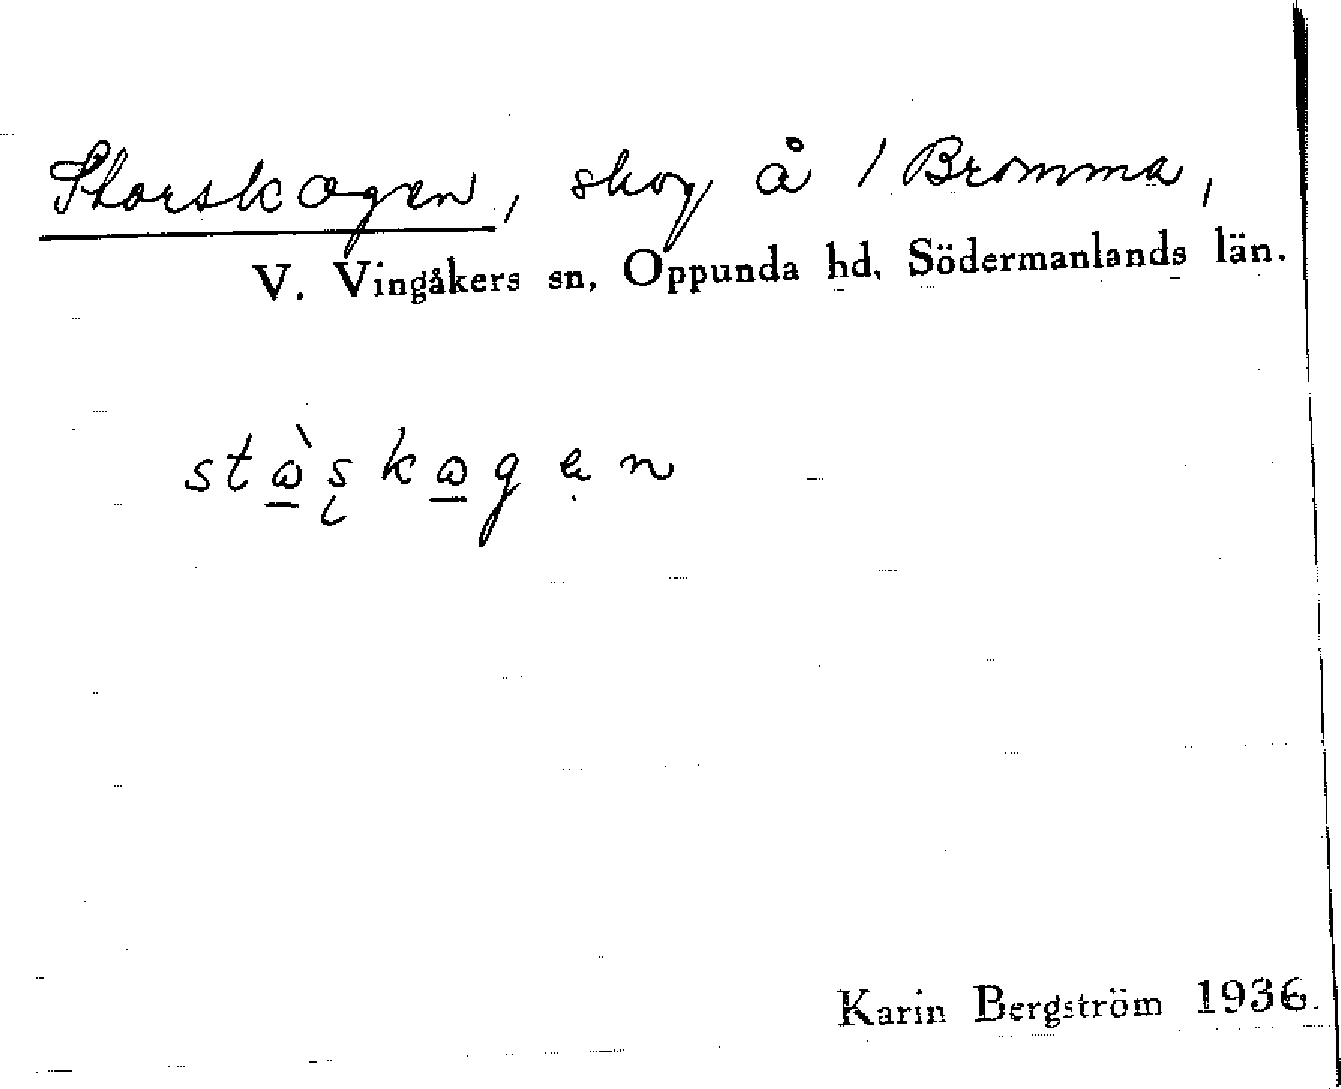 Storskogen, skog å 1 Bromma,
V. Vingåkers sn, Oppunda hd, Södermanlands län.
stὼ̲ʂkω̲gạn
Karin Bergström 1936.